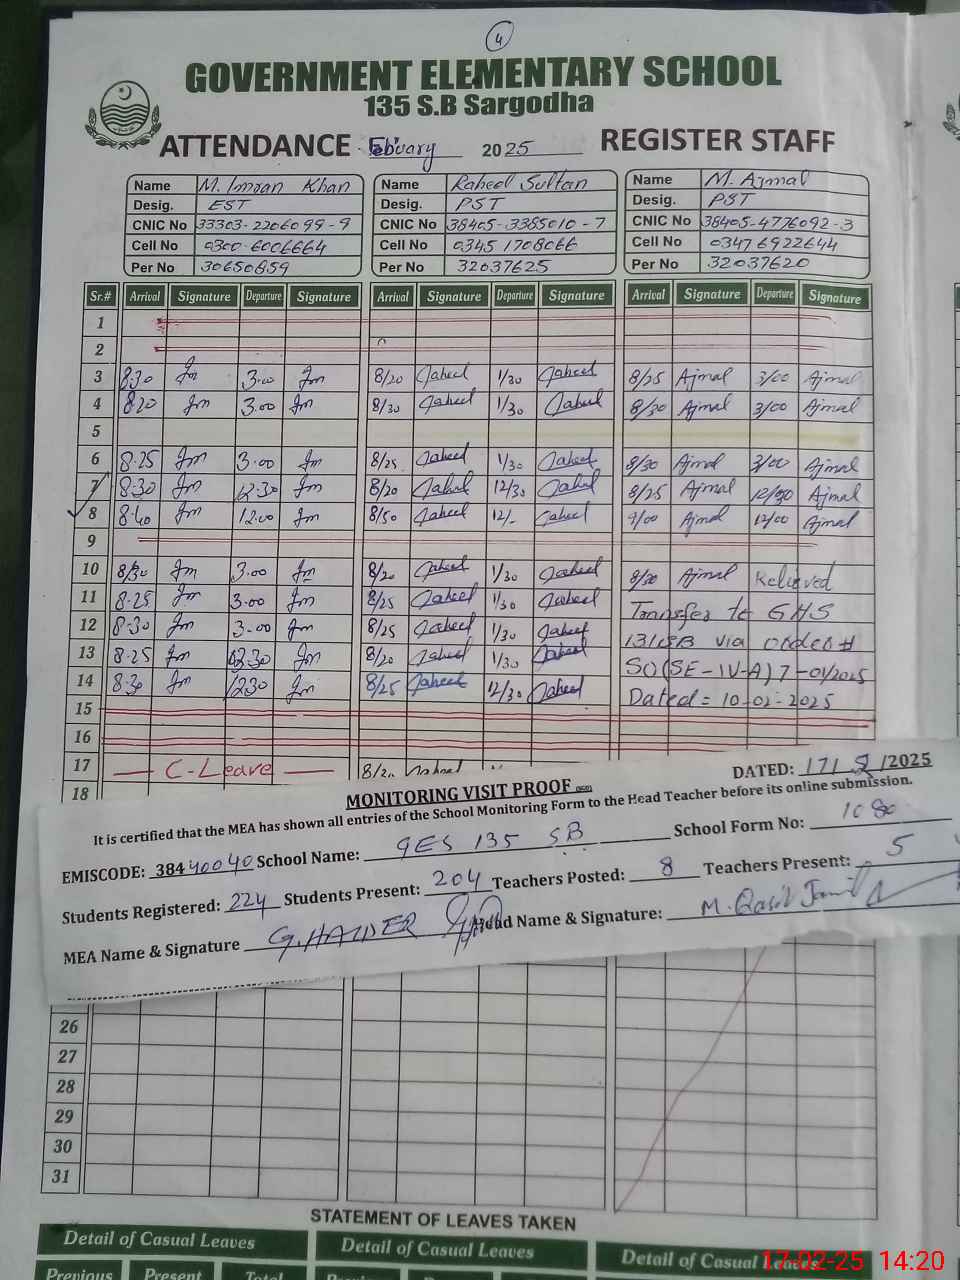 4
GOVERNMENT ELEMENTARY SCHOOL
135 S.B Sargodha
ATTENDANCE Febuary 2025 REGISTER STAFF
Name M. Imran Khan Name Raheel Sultan Name M. Ajmal
Desig. EST Desig. PST Desig. PST
CNIC No 33303-2206099-9 CNIC No 38405-3385010-7 CNIC No 38405-4776092-3
Cell No 0300-6006664 Cell No 0345 1708066 Cell No 0347 6922644
Per No 30650859 Per No 32037625 Per No 32037620
Sr.# Arrival Signature Departure Signature Arrival Signature Departure Signature Arrival Signature Departure Signature
1
2
3 8:30 Im 3.00 Im 8/20 Raheel 1/30 Raheel 8/25 Ajmal 3/00 Ajmal
4 8:20 Im 3.00 Im 8/30 Raheel 1/30 Raheel 8/30 Ajmal 3/00 Ajmal
5
6 8.25 Im 3.00 Im 8/25 Raheel 1/30 Raheel 8/30 Ajmal 3/00 Ajmal
7 8.30 Im 12.30 Im 8/20 Raheel 12/30 Raheel 8/25 Ajmal 12/30 Ajmal
8 8.40 Im 12.00 Im 8/50 Raheel 12/- Raheel 9/00 Ajmal 12/00 Ajmal
9
10 8/30 Im 3.00 Im 8/20 Raheel 1/30 Raheel 8/30 Ajmal Relieved
11 8.25 Im 3.00 Im 8/25 Raheel 1/30 Raheel Transfer to GHS
12 8.30 Im 3.00 Im 8/25 Raheel 1/30 Raheel 131 SB via order #
13 8.25 Im 12.30 Im 8/20 Raheel 1/30 Raheel SO(SE-IV-A)7-01/2025
14 8.30 Im 1230 Im 8/25 Raheel 12/30 Raheel Dated = 10-02-2025
15
16
17 C-Leave 8/20 Raheel
18
MONITORING VISIT PROOF DATED: 17/2/2025
It is certified that the MEA has shown all entries of the School Monitoring Form to the Head Teacher before its online submission.
EMISCODE: 38440040 School Name: GES 135 SB School Form No: 1080
Students Registered: 224 Students Present: 204 Teachers Posted: 8 Teachers Present: 5
MEA Name & Signature G.HAIDER Head Name & Signature: M. Qasil Jamil
26
27
28
29
30
31
STATEMENT OF LEAVES TAKEN
Detail of Casual Leaves Detail of Casual Leaves Detail of Casual Leaves
Previous Present Total
17-02-25 14:20